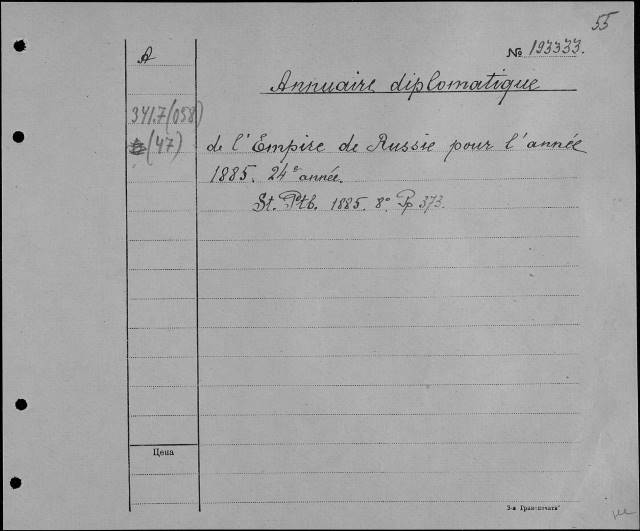 55
№ 193333.
A
Annuaire diplomatique
341.7(058)
(47)
de l'Empire de Russie pour l'année
1885. 24e année.
St. Ptb. 1885. 8° Pp 373.
Цена